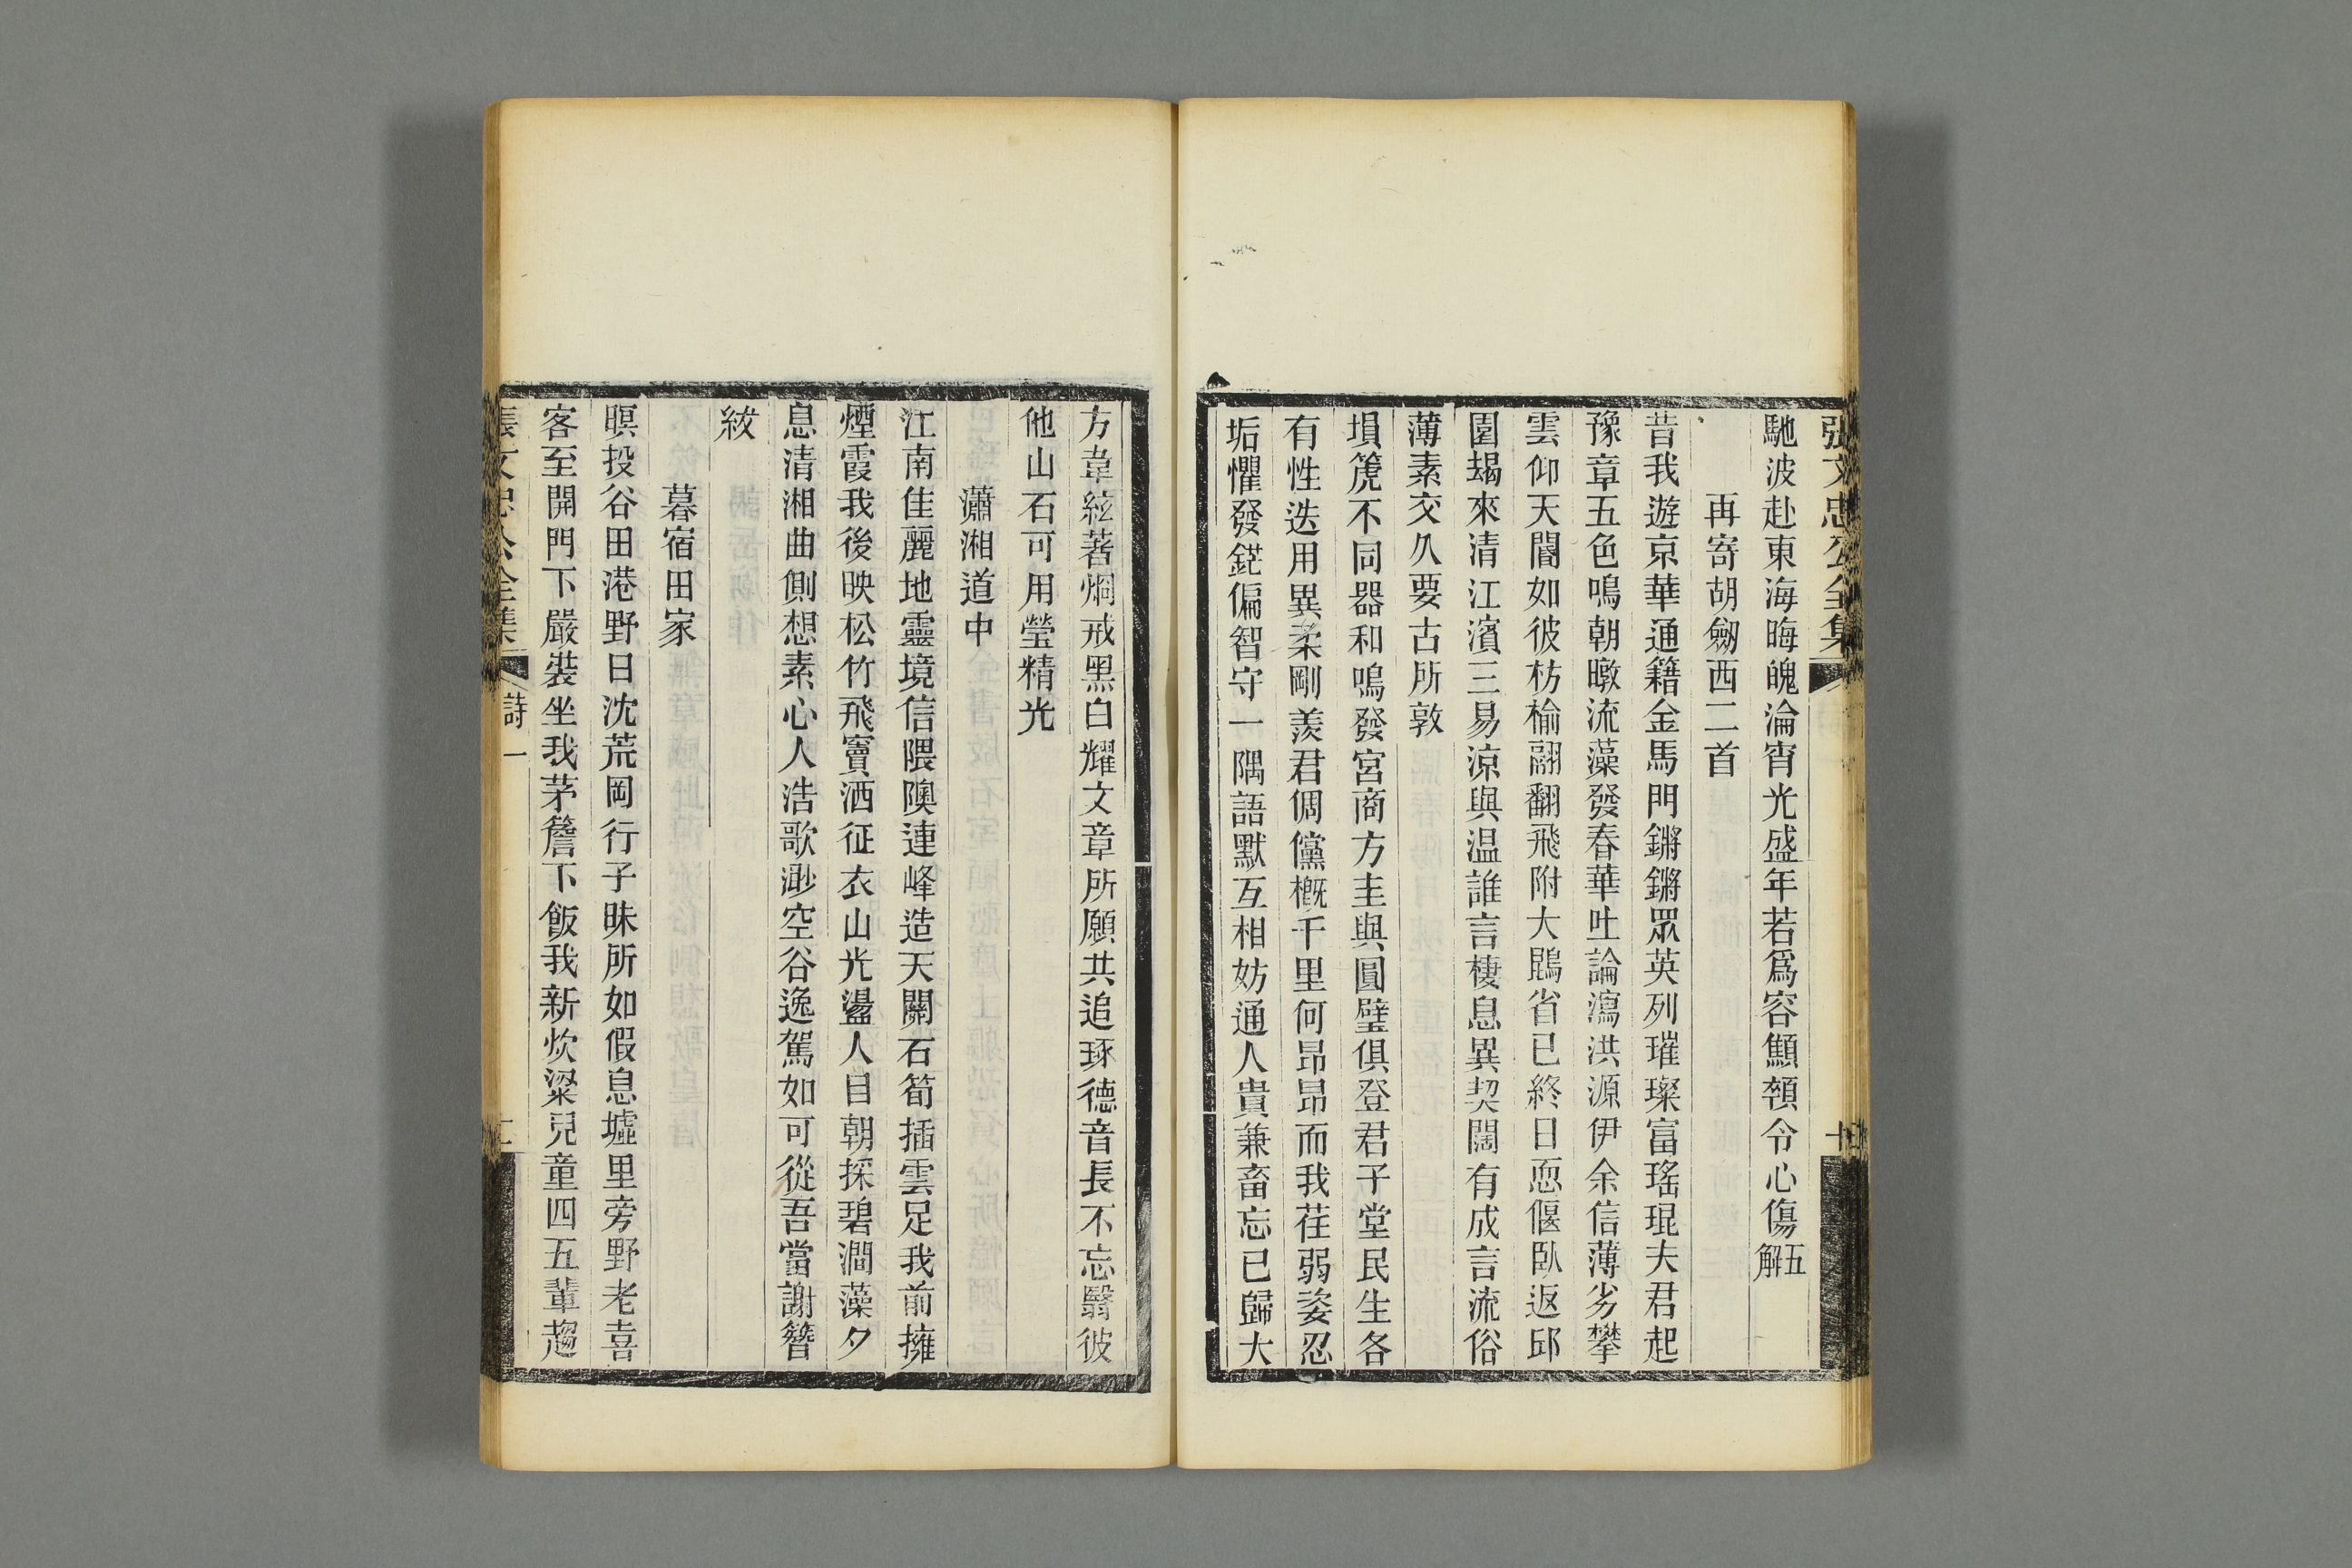 張文忠公全集
十
馳波赴東海晦魄淪宵光盛年若爲容顦顇令心傷五解
再寄胡劒西二首
昔我遊京華通籍金馬門鏘鏘眾英列璀璨富瑤琨夫君起
豫章五色鳴朝暾流藻發春華吐論瀉洪源伊余信薄劣攀
雲仰天閽如彼枋榆翮翻飛附大鵾省已終日恧偃臥返邱
園朅來清江濱三易涼與温誰言棲息異契闊有成言流俗
薄素交久要古所敦
塤篪不同器和鳴發宮商方圭與圓璧俱登君子堂民生各
有性迭用異柔剛羨君倜儻概千里何昂昂而我荏弱姿忍
垢懼發鋩偏智守一隅語默互相妨通人貴兼畜忘已歸大
方韋絃著炯戒黑白耀文章所願共追琢德音長不忘翳彼
他山石可用瑩精光
瀟湘道中
江南佳麗地靈境信隈隩連峰造天關石筍插雲足我前擁
煙霞我後映松竹飛竇洒征衣山光盪人目朝採碧澗藻夕
息清湘曲側想素心人浩歌渺空谷逸駕如可從吾當謝簪
紱
暮宿田家
暝投谷田港野日沈荒岡行子昧所如假息墟里旁野老喜
客至開門下嚴裝坐我茅簷下飯我新炊粱兒童四五輩趨
張文忠公全集
詩一